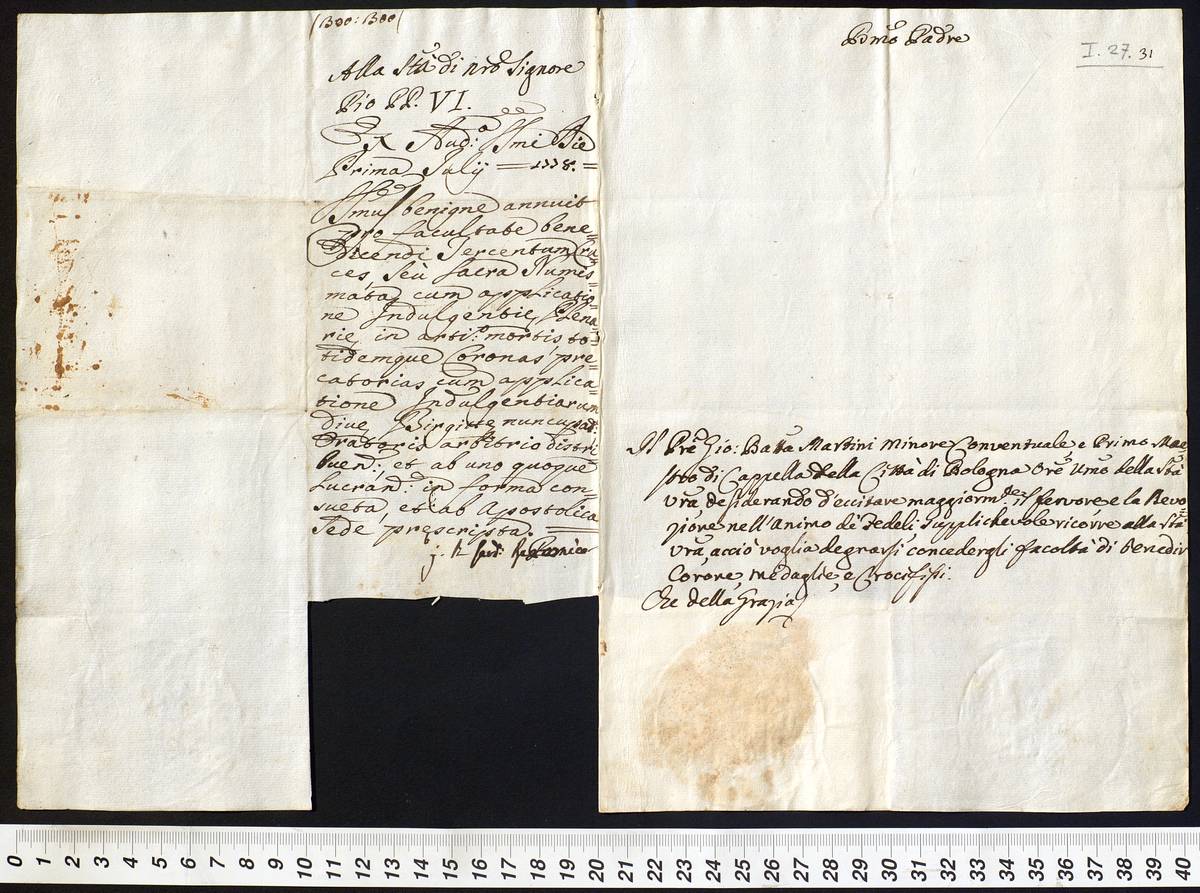 (300: 300)
Alla Sta di nro Signore
Pio PP. VI.
Ex Aud.a Smi Die
Prima Julij = 1778. =
Smus benigne annuit
pro facultate bene=
dicendi Tercentum Cru=
ces, seù sacra Numis=
mata, cum applicatio=
ne Indulgentie Plena=
rie, in arti.o mortis to=
tidemque Coronas pre=
catorias cum applica=
tione Indulgentiarum
Dive Birgitte nuncupat:
Oratoris arbitrio distri
buend: et ab uno quoque
lucrand: in forma con=
sueta, et ab Apostolica
Sede pręscripta.
Bmo Padre
I. 27. 31
Il Pre Gio: Batta Martini Minore Conventuale, e Primo Mae
stro di Cappella della Città di Bologna Ore Umo della Sta
Vra, desiderando d'eccitare maggiorm.te il fervore e la Devo
zione nell'Animo de Fedeli, supplichevole ricorre alla Sta
Vra, acciò voglia degnarsi concedergli facoltà di benedir
Corone, Medaglie, e Crocifissi.
Che della Grazia
0 1 2 3 4 5 6 7 8 9 10 11 12 13 14 15 16 17 18 19 20 21 22 23 24 25 26 27 28 29 30 31 32 33 34 35 36 37 38 39 40